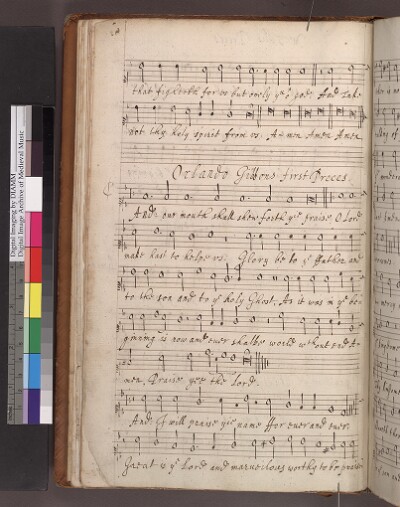 that fighteth for us but onely yu o god. And take
not thy holy spirit from us. Amen Amen Amen
Orlando Gibbons first Preces
And our mouth shall shew forth ye praise O Lord
make hast to helpe us. Glory be to ye ffather and
to the son and to ye holy Ghost. As it was in ye be
ginning is now and ever shalbe world without end A
men. Praise yee the Lord.
And I will praise name ffor ever and ever.
Great is ye Lord and marveilous worthy to be praised
Digital Imaging by DIAMM
Digital Image Archive of Medieval Music